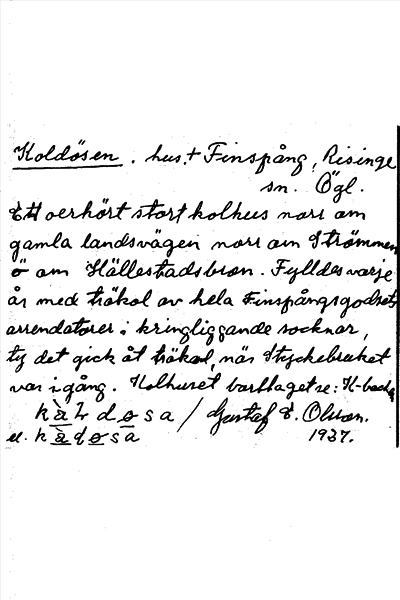 Koldösen. hus.† Finspång, Risinge
sn. Ögl.
Ett oerhört stort kolhus norr om
gamla landsvägen norr om Strömmen
ö om Hällestadsbron. Fylldes varje
år med träkol av hela Finspångsgodsets
arrendatorer i kringliggande socknar,
ty det gick åt träkol, när Styckebruket
var igång. Kolhuset borttaget se: K-backe
Gustaf E. Olsson.
1937.